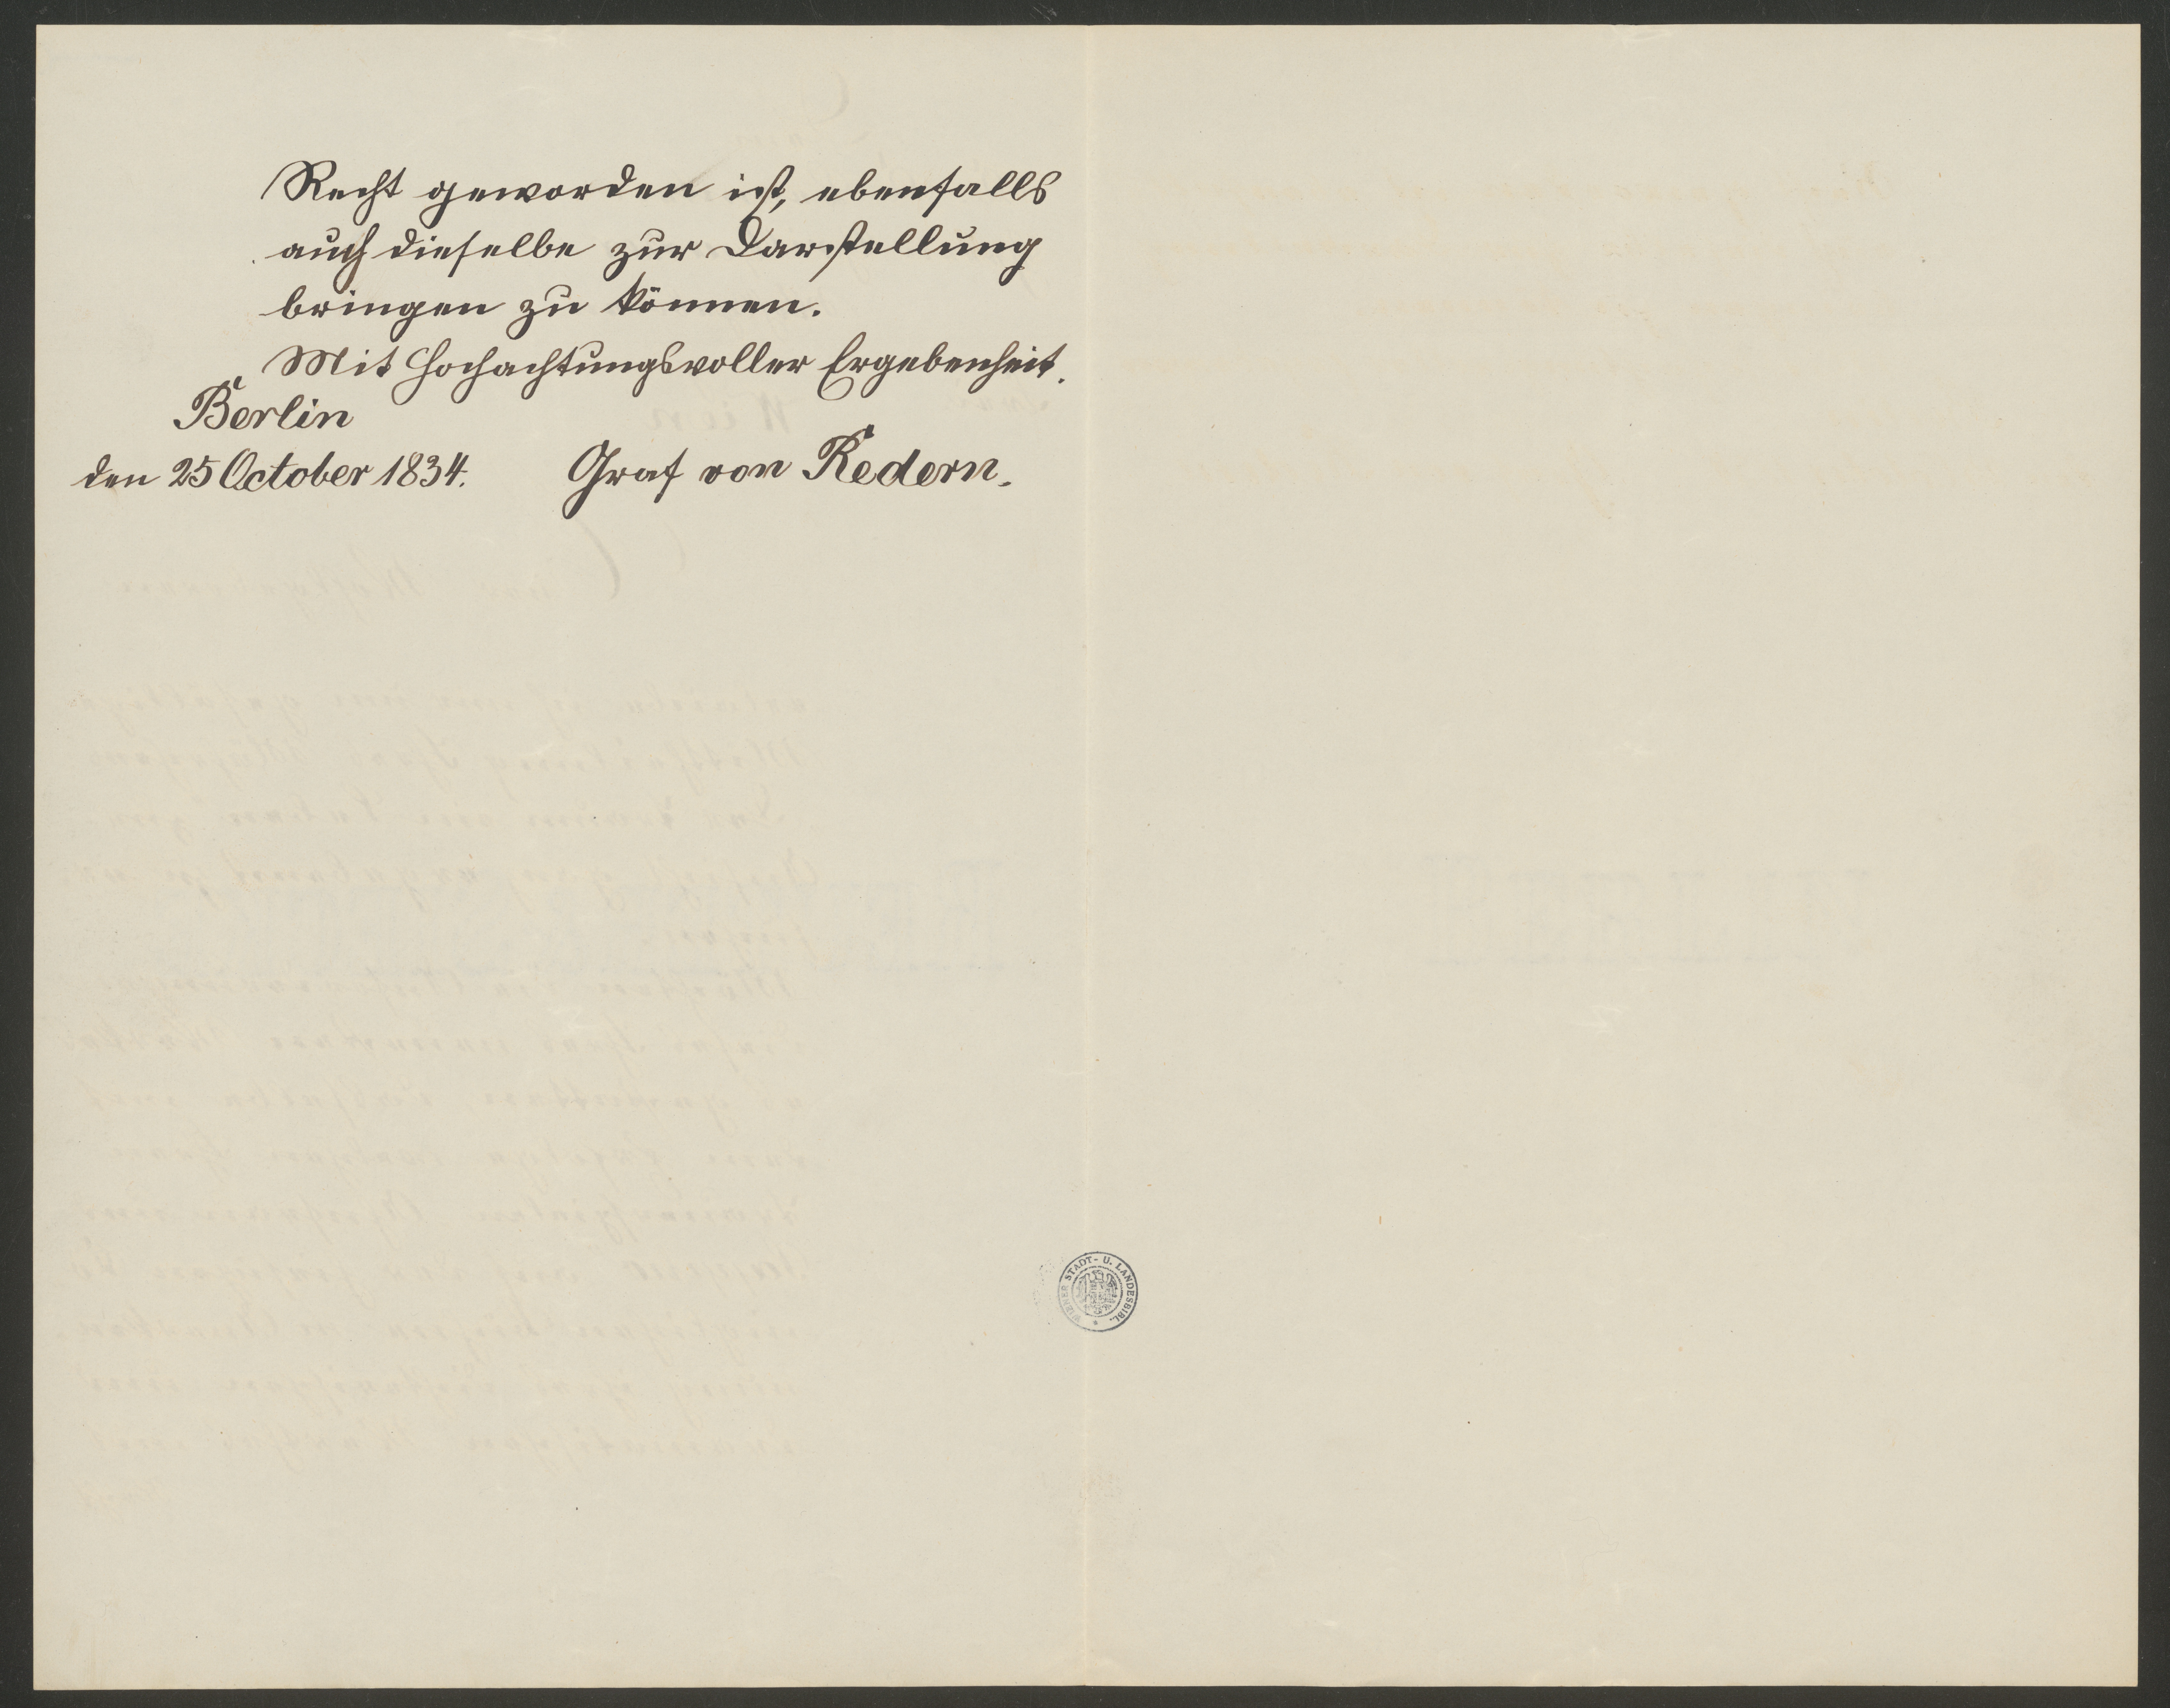 Recht geworden ist, ebenfalls
auch dieselbe zur Darstellung
bringen zu können.
Mit hochachtungsvoller Ergebenheit.
Berlin
den 25 October 1834. Graf von Redern.
WIENER STADT- U. LANDESBIBL.